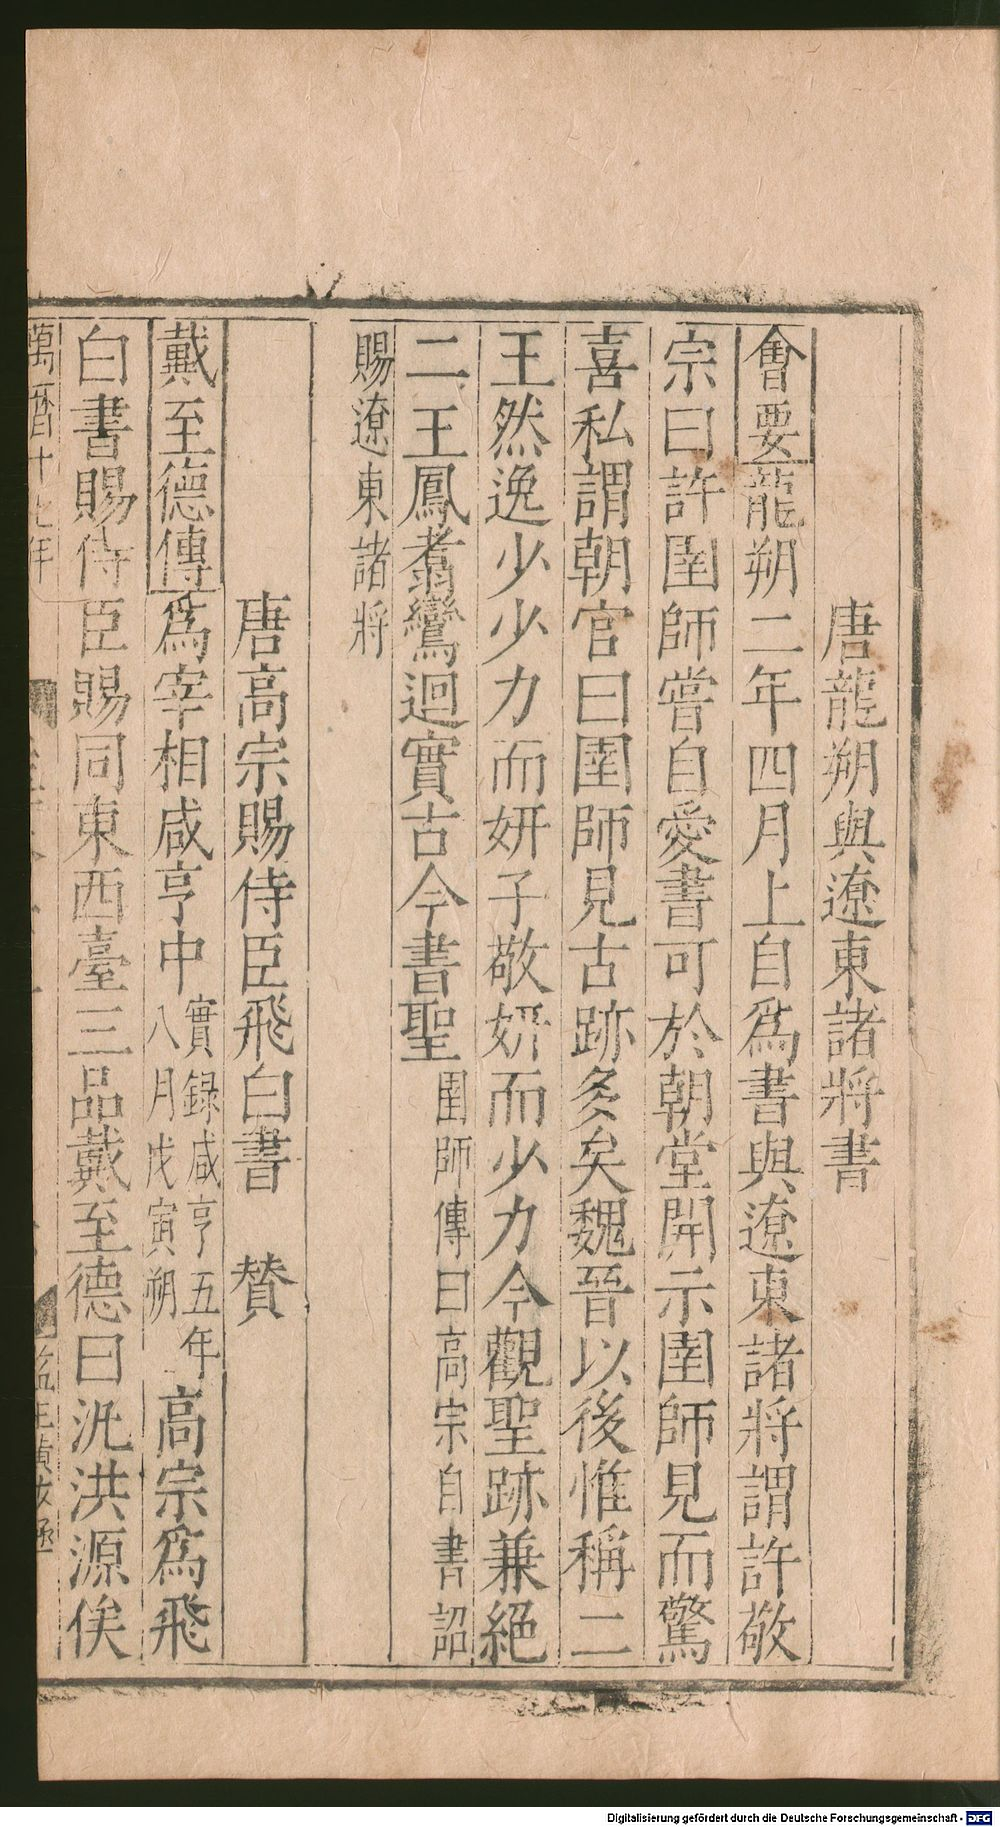 唐龍朔與遼東諸將書
會要龍朔二年四月上自爲書與遼東諸將謂許敬
宗曰許圉師嘗自愛書可於朝堂開示圉師見而驚
喜私謂朝官曰圉師見古跡多矣魏晉以後惟稱二
王然逸少少力而妍子敬妍而少力今觀聖跡兼絕
二王鳳翥鸞迴實古今書聖圉師傳曰高宗自書詔
賜遼東諸將
唐高宗賜侍臣飛白書 贊
戴至德傳爲宰相咸亨中實録咸亨五年八月戊寅朔高宗爲飛
白書賜侍臣賜同東西臺三品戴至德曰汎洪源俟
Digitalisierung gefördert durch die Deutsche Forschungsgemeinschaft - DFG